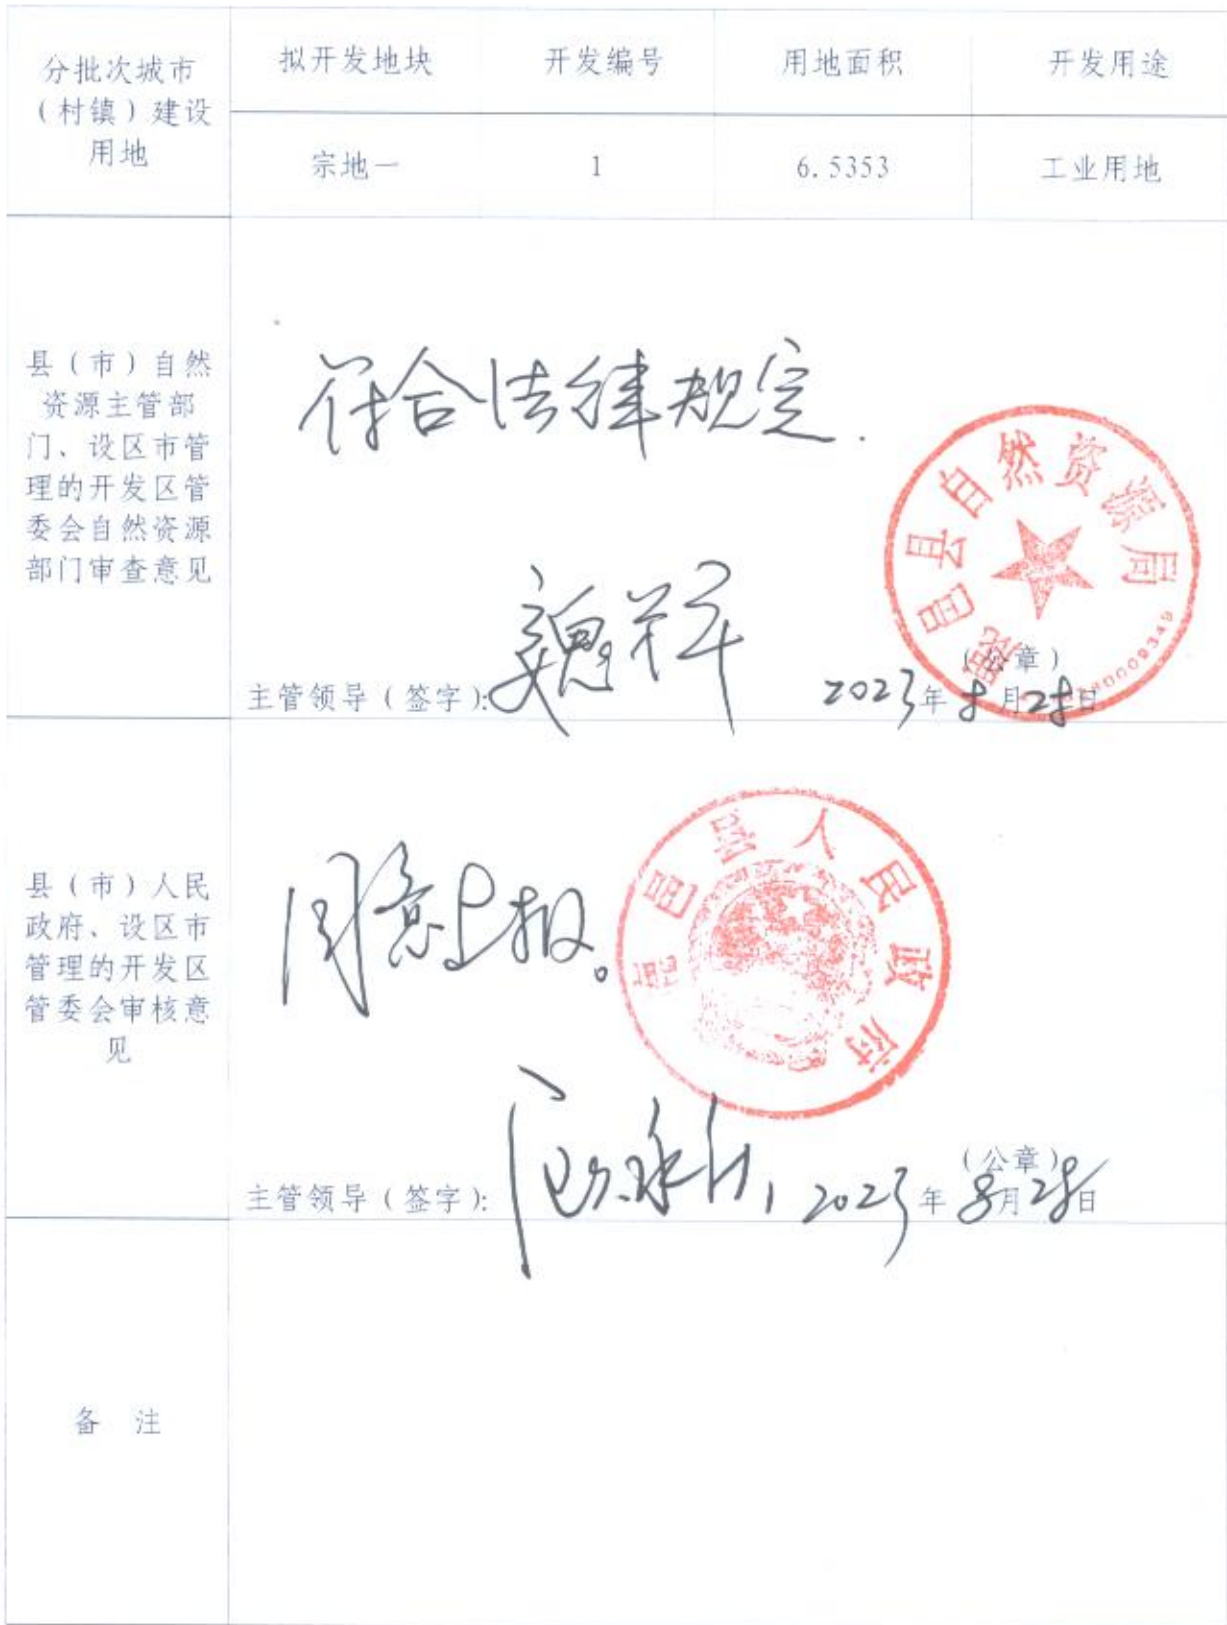 分批次城市
（村镇）建设
用地
拟开发地块 开发编号 用地面积 开发用途
宗地一 1 6.5353 工业用地
县（市）自然
资源主管部
门、设区市管
理的开发区管
委会自然资源
部门审查意见
符合法律规定.
鹿邑县自然资源局
（公章）
主管领导（签字）: 2023年8月28日
县（市）人民
政府、设区市
管理的开发区
管委会审核意
见
同意上报。
鹿邑县人民政府
（公章）
主管领导（签字）: 2023年8月28日
备 注